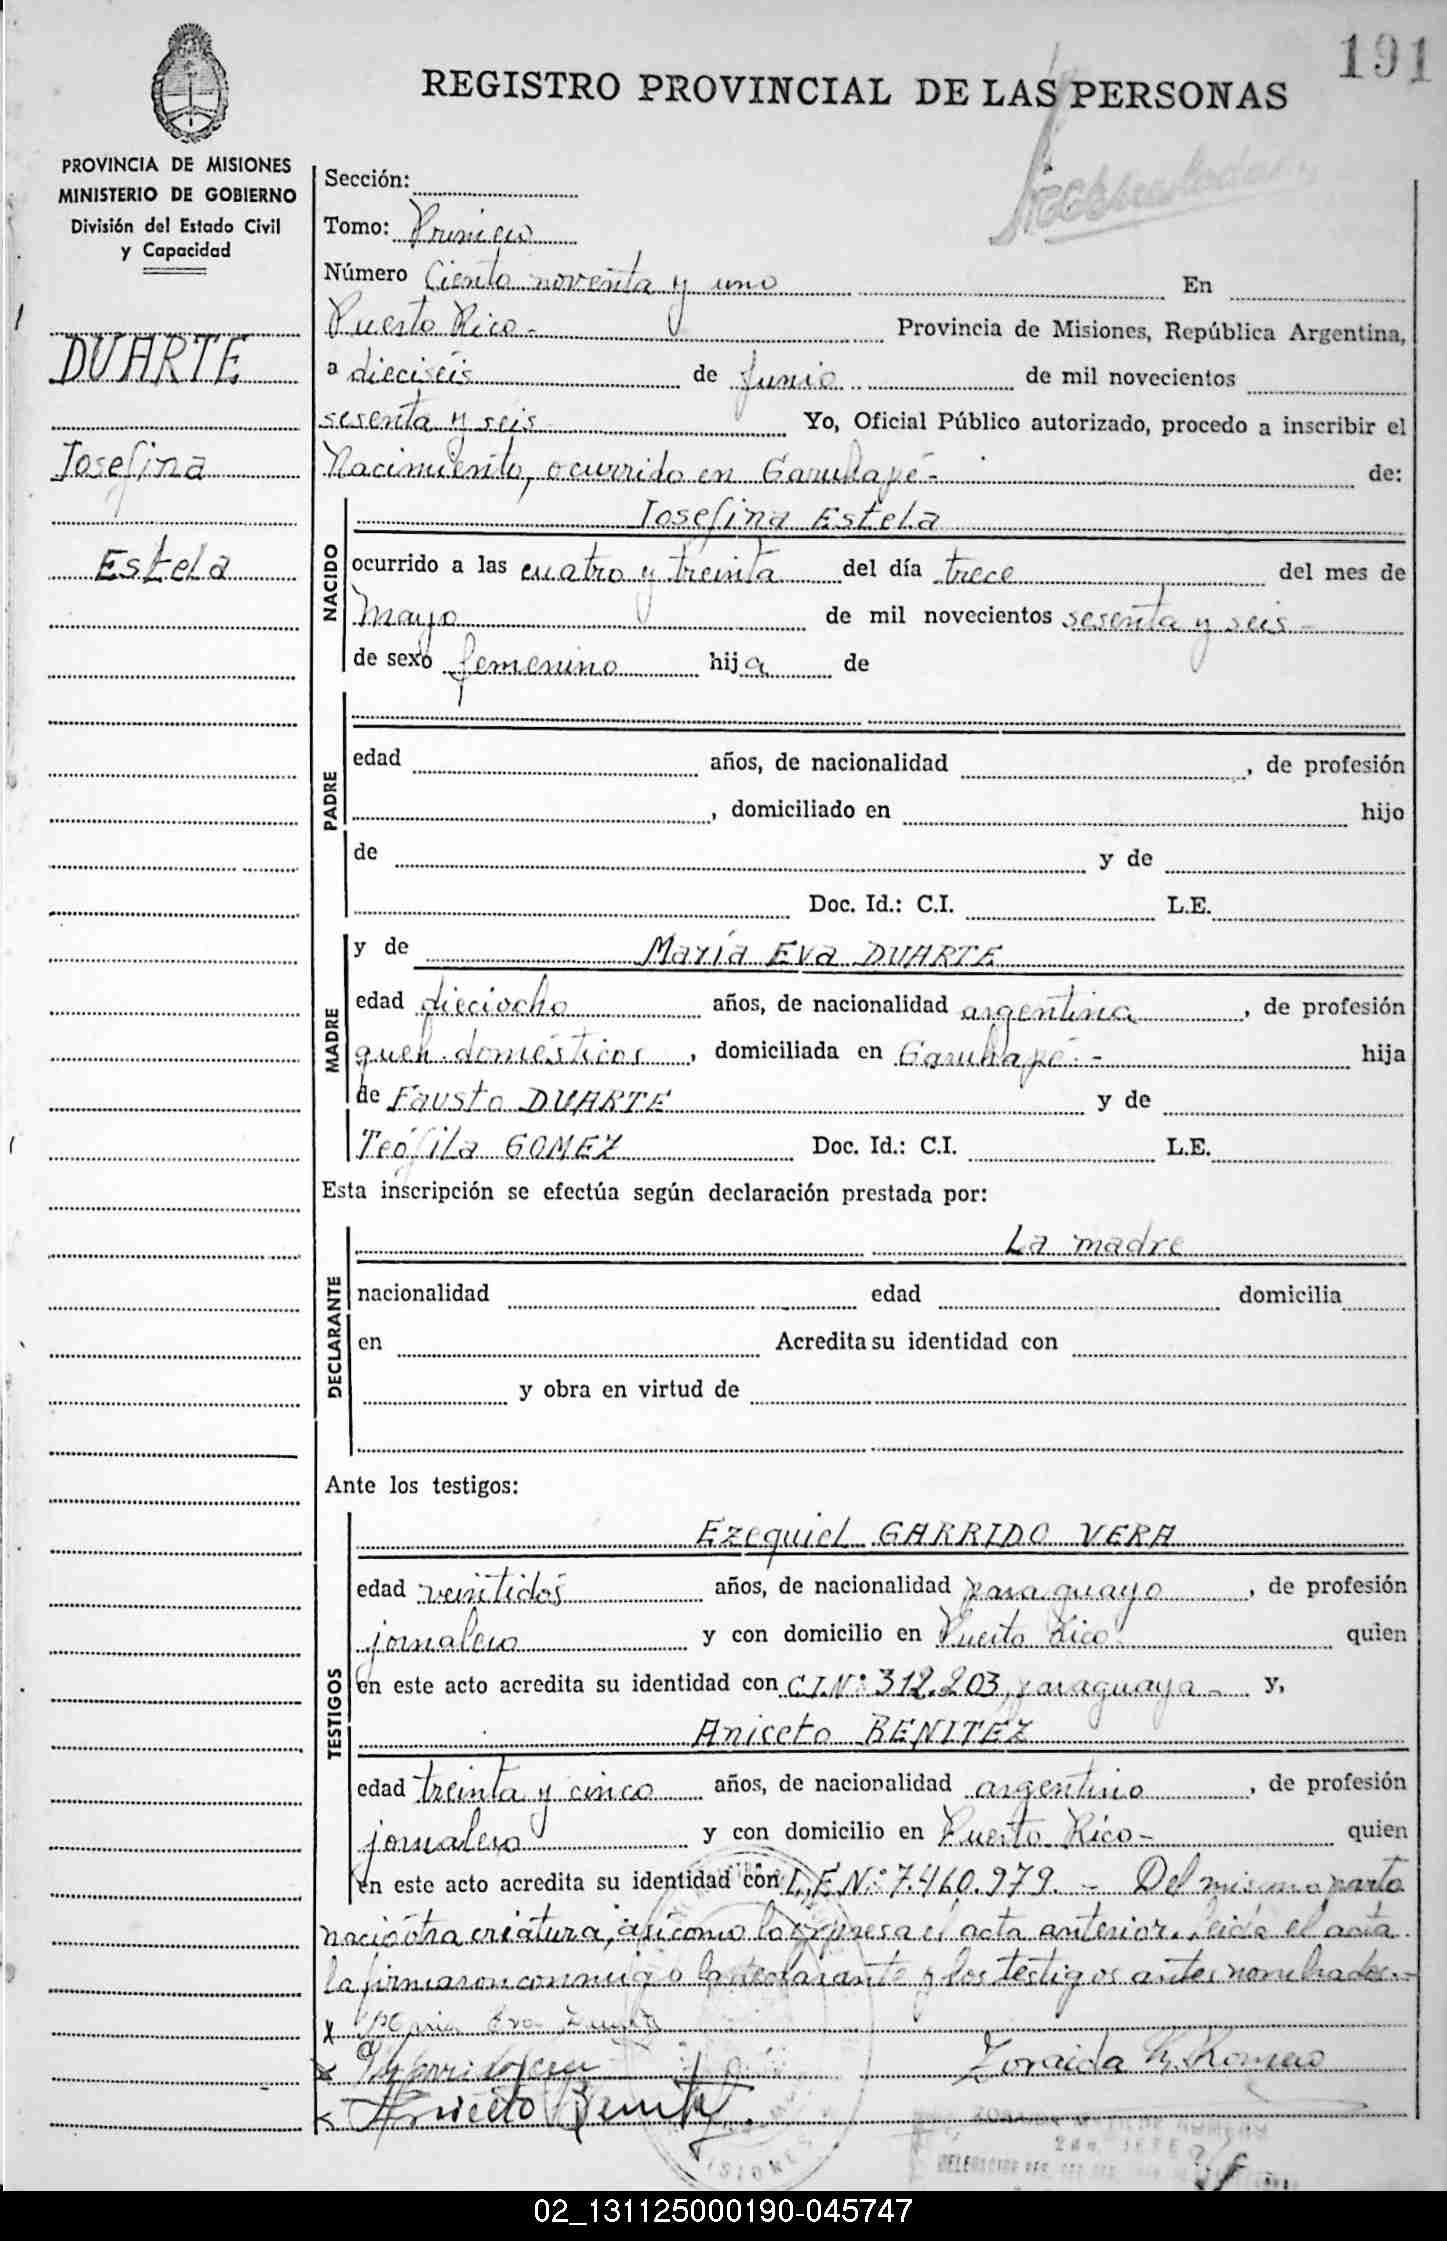 191
REGISTRO PROVINCIAL DE LAS PERSONAS
PROVINCIA DE MISIONES
MINISTERIO DE GOBIERNO
División del Estado Civil
y Capacidad
DUARTE
Josefina
Estela
Sección:
Tomo: Primero
Número Ciento noventa y uno En
Puerto Rico- Provincia de Misiones, República Argentina,
a dieciséis de Junio de mil novecientos
sesenta y seis Yo, Oficial Público autorizado, procedo a inscribir el
Nacimiento, ocurrido en Garuhapé- de:
NACIDO
Josefina Estela
ocurrido a las cuatro y treinta del día trece del mes de
Mayo de mil novecientos sesenta y seis-
de sexo femenino hija de
PADRE
edad años, de nacionalidad , de profesión
, domiciliado en hijo
de y de
Doc. Id.: C.I. L.E.
MADRE
y de María Eva DUARTE
edad dieciocho años, de nacionalidad argentina , de profesión
queh. domésticos , domiciliada en Garuhapé.- hija
de Fausto DUARTE y de
Teófila GOMEZ Doc. Id.: C.I. L.E.
Esta inscripción se efectúa según declaración prestada por:
DECLARANTE
La madre
nacionalidad edad domicilia
en Acredita su identidad con
y obra en virtud de
Ante los testigos:
TESTIGOS
Ezequiel GARRIDO VERA
edad veintidós años, de nacionalidad paraguayo , de profesión
jornalero y con domicilio en Puerto Rico- quien
en este acto acredita su identidad con C.I.Nº: 312.203, paraguaya- y,
Aniceto BENITEZ
edad treinta y cinco años, de nacionalidad argentino , de profesión
jornalero y con domicilio en Puerto Rico- quien
en este acto acredita su identidad con L.E.Nº: 7.460.979. - Del mismo parto
nació otra criatura, así como lo expresa el acta anterior. Leída el acta
la firmaron conmigo la declarante y los testigos antes nombrados.-
x María Eva Duarte
Zoraida M. Romero
x Aniceto Benitez
MISIONES
02_131125000190-045747